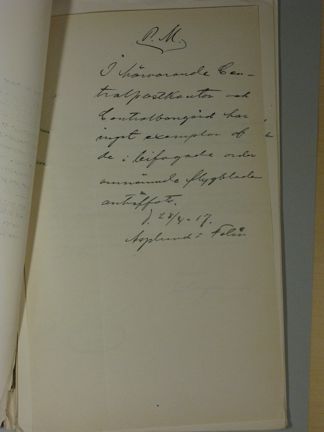 P. M.
I härvarande Cen-
tralpostkontor och
Centralbangård har
intet exemplar af
de i bifogade order
omnämnde flygblade
anträffats.
d. 28/4 - 17.